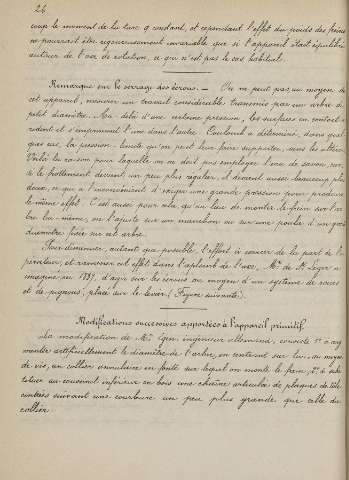 26
coup le moment de la tare q constant, et cependant l'effet du poids des freins
ne pourrait être rigoureusement invariable que si l'appareil était équilibré
autour de l'axe de rotation, ce qui n'est pas le cas habituel.
Remarque sur le serrage des écrous. — On ne peut pas au moyen de
cet appareil, mesurer un travail considérable transmis par un arbre de
petit diamètre. Au delà d'une certaine pression, les surfaces en contact
rodent et s'impriment l'une dans l'autre. Coulomb a déterminé, dans quel-
ques cas, la pression limite qu'on peut leur faire supporter, sans les altérer.
Voilà la raison pour laquelle on ne doit pas employer l'eau de savon car,
si le frottement devient un peu plus régulier, il devient aussi beaucoup plus
doux, ce qui a l'inconvénient d'exiger une grande pression pour produire
le même effet. C'est aussi pour cela, qu'au lieu de monter le frein sur l'ar-
bre lui-même, on l'ajuste sur un manchon ou sur une poulie d'un grand
diamètre fixée sur cet arbre.
Pour diminuer, autant que possible, l'effort à exercer de la part de l'o-
pérateur, et ramener cet effet dans l'aplomb de l'axe, Mr. de St Léger a
imaginé en 1837, d'agir sur les écrous au moyen d'un système de roues
et de pignons, placé sur le levier (Figure suivante).
Modifications successives apportées à l'appareil primitif.
La modification de Mr. Egen, ingénieur allemand, consiste 1° à aug-
menter artificiellement le diamètre de l'arbre, en centrant sur lui, au moyen
de vis, un collier annulaire en fonte sur lequel on monte le frein, 2° à subs-
tituer au coussinet inférieur en bois une chaîne articulée de plaques de tôle
cintrées suivant une courbure un peu plus grande que celle du
collier.